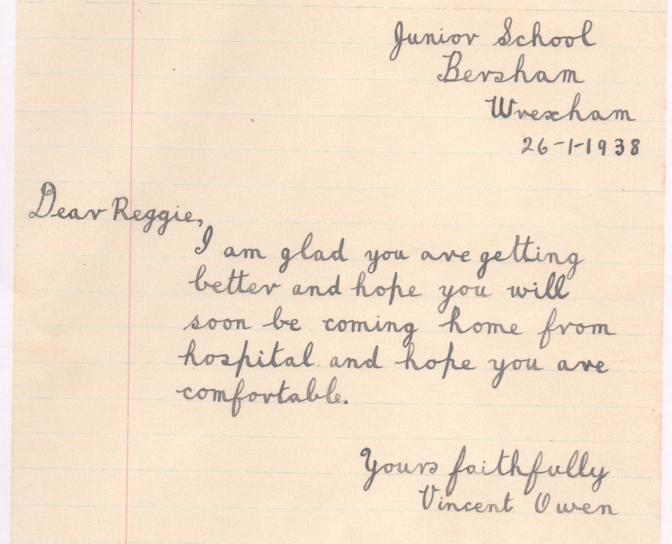 Junior School
Bersham
Wrexham
26-1-1938
Dear Reggie,
I am glad you are getting
better and hope you will
soon be coming home from
hospital and hope you are
comfortable.
Yours faithfully
Vincent Owen